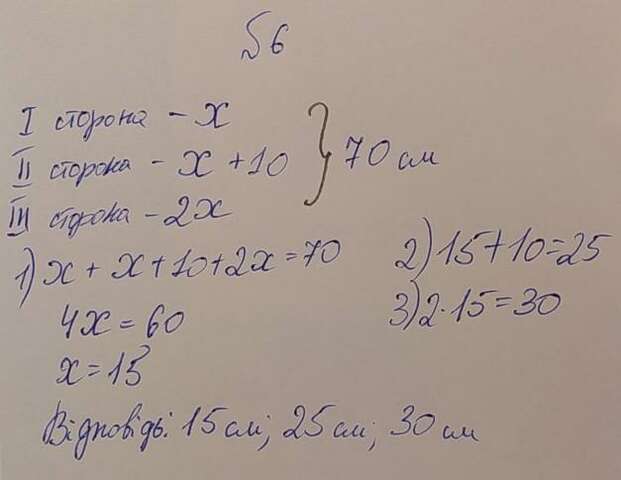 №6
I сторона - x
II сторона - x + 10
III сторона - 2x
} 70 см
1) x + x + 10 + 2x = 70
4x = 60
x = 15
2) 15 + 10 = 25
3) 2 · 15 = 30
Відповідь: 15 см; 25 см; 30 см